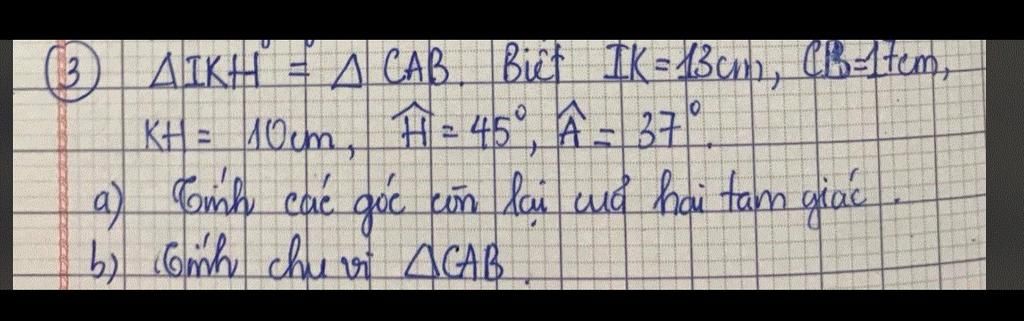 ③ ΔIKH = Δ CAB. Biết IK = 13cm, CB = 17cm,
KH = 10cm, Ĥ = 45°, Â = 37°.
a) Tính các góc còn lại cuả hai tam giác.
b) Tính chu vi ΔCAB.